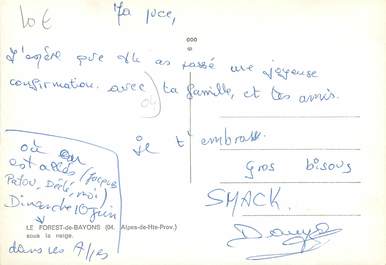 10 €
Ma puce,
J'espère que tu as passé une joyeuse
confirmation avec ta famille, et tes amis.
04
je t'embrasse.
Gros bisous
SMACK.
où on
est allés (Jacques
Patou, Dédé, moi)
Dimanche 10 juin
LE FOREST-de-BAYONS (04. Alpes-de-Hte-Prov.)
sous la neige.
dans les Alpes